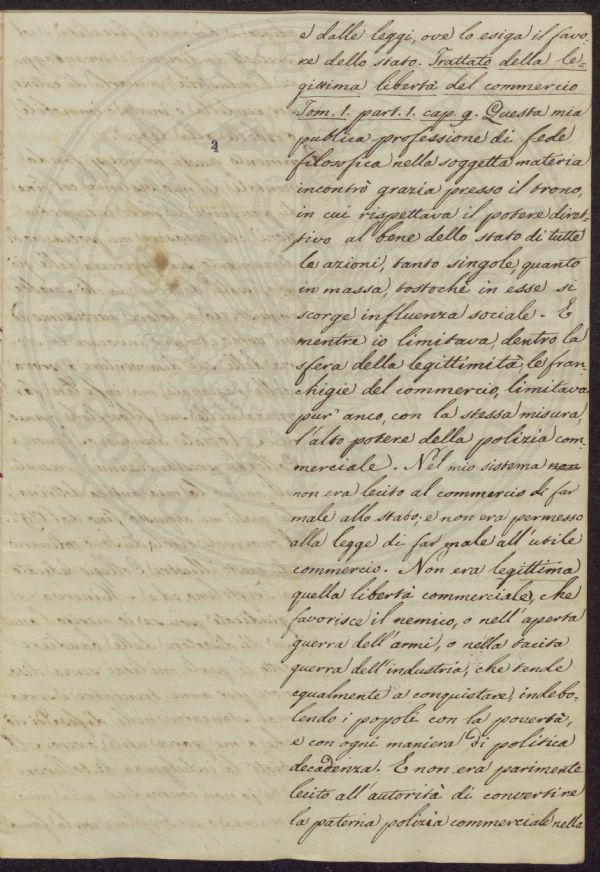 e dalle leggi, ove lo esiga il favo-
re dello stato. Trattato della le-
gittima libertà del commercio
Tom. 1. part. 1. cap. 9. Questa mia
publica professione di fede
filosofica nella soggetta materia
incontrò grazia presso il trono,
in cui rispettava il potere diret-
tivo al bene dello stato di tutte
le azioni, tanto singole, quanto
in massa, tostochè in esse si
scorge influenza sociale. E
mentre io limitava, dentro la
sfera della legittimità, le fran-
chigie del commercio, limitava
pur' anco, con la stessa misura,
l'alto potere della polizia com-
merciale. Nel mio sistema non
non era lecito al commercio di far
male allo stato; e non era permesso
alla legge di far male all'utile
commercio. Non era legittima
quella libertà commerciale, che
favorisce il nemico, o nell'aperta
guerra dell'armi, o nella tacita
guerra dell'industria, che tende
egualmente a conquistare, indebo-
lendo i popoli con la povertà,
e con ogni maniera di politica
decadenza. E non era parimente
lecito all'autorità di convertire
la paterna polizia commerciale nella